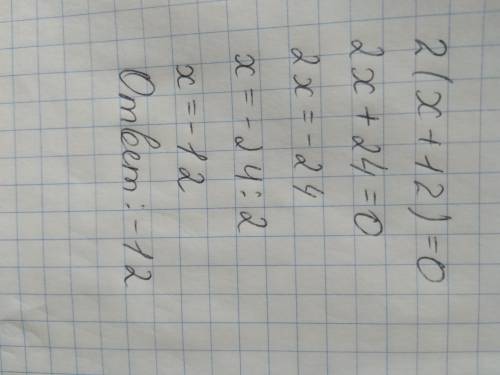 2(x+12)=0
2x+24=0
2x=-24
x=-24:2
x=-12
Ответ:-12